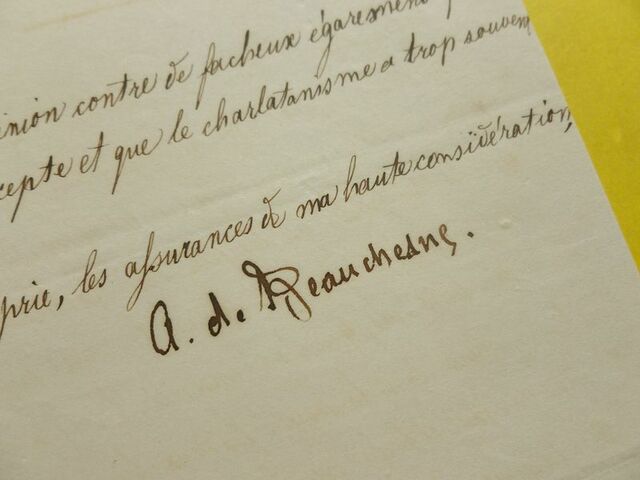 inion contre de facheux égarements
cepte et que le charlatanisme a trop souvent
prie, les assurances de ma haute considération,
A. de Beauchesne.